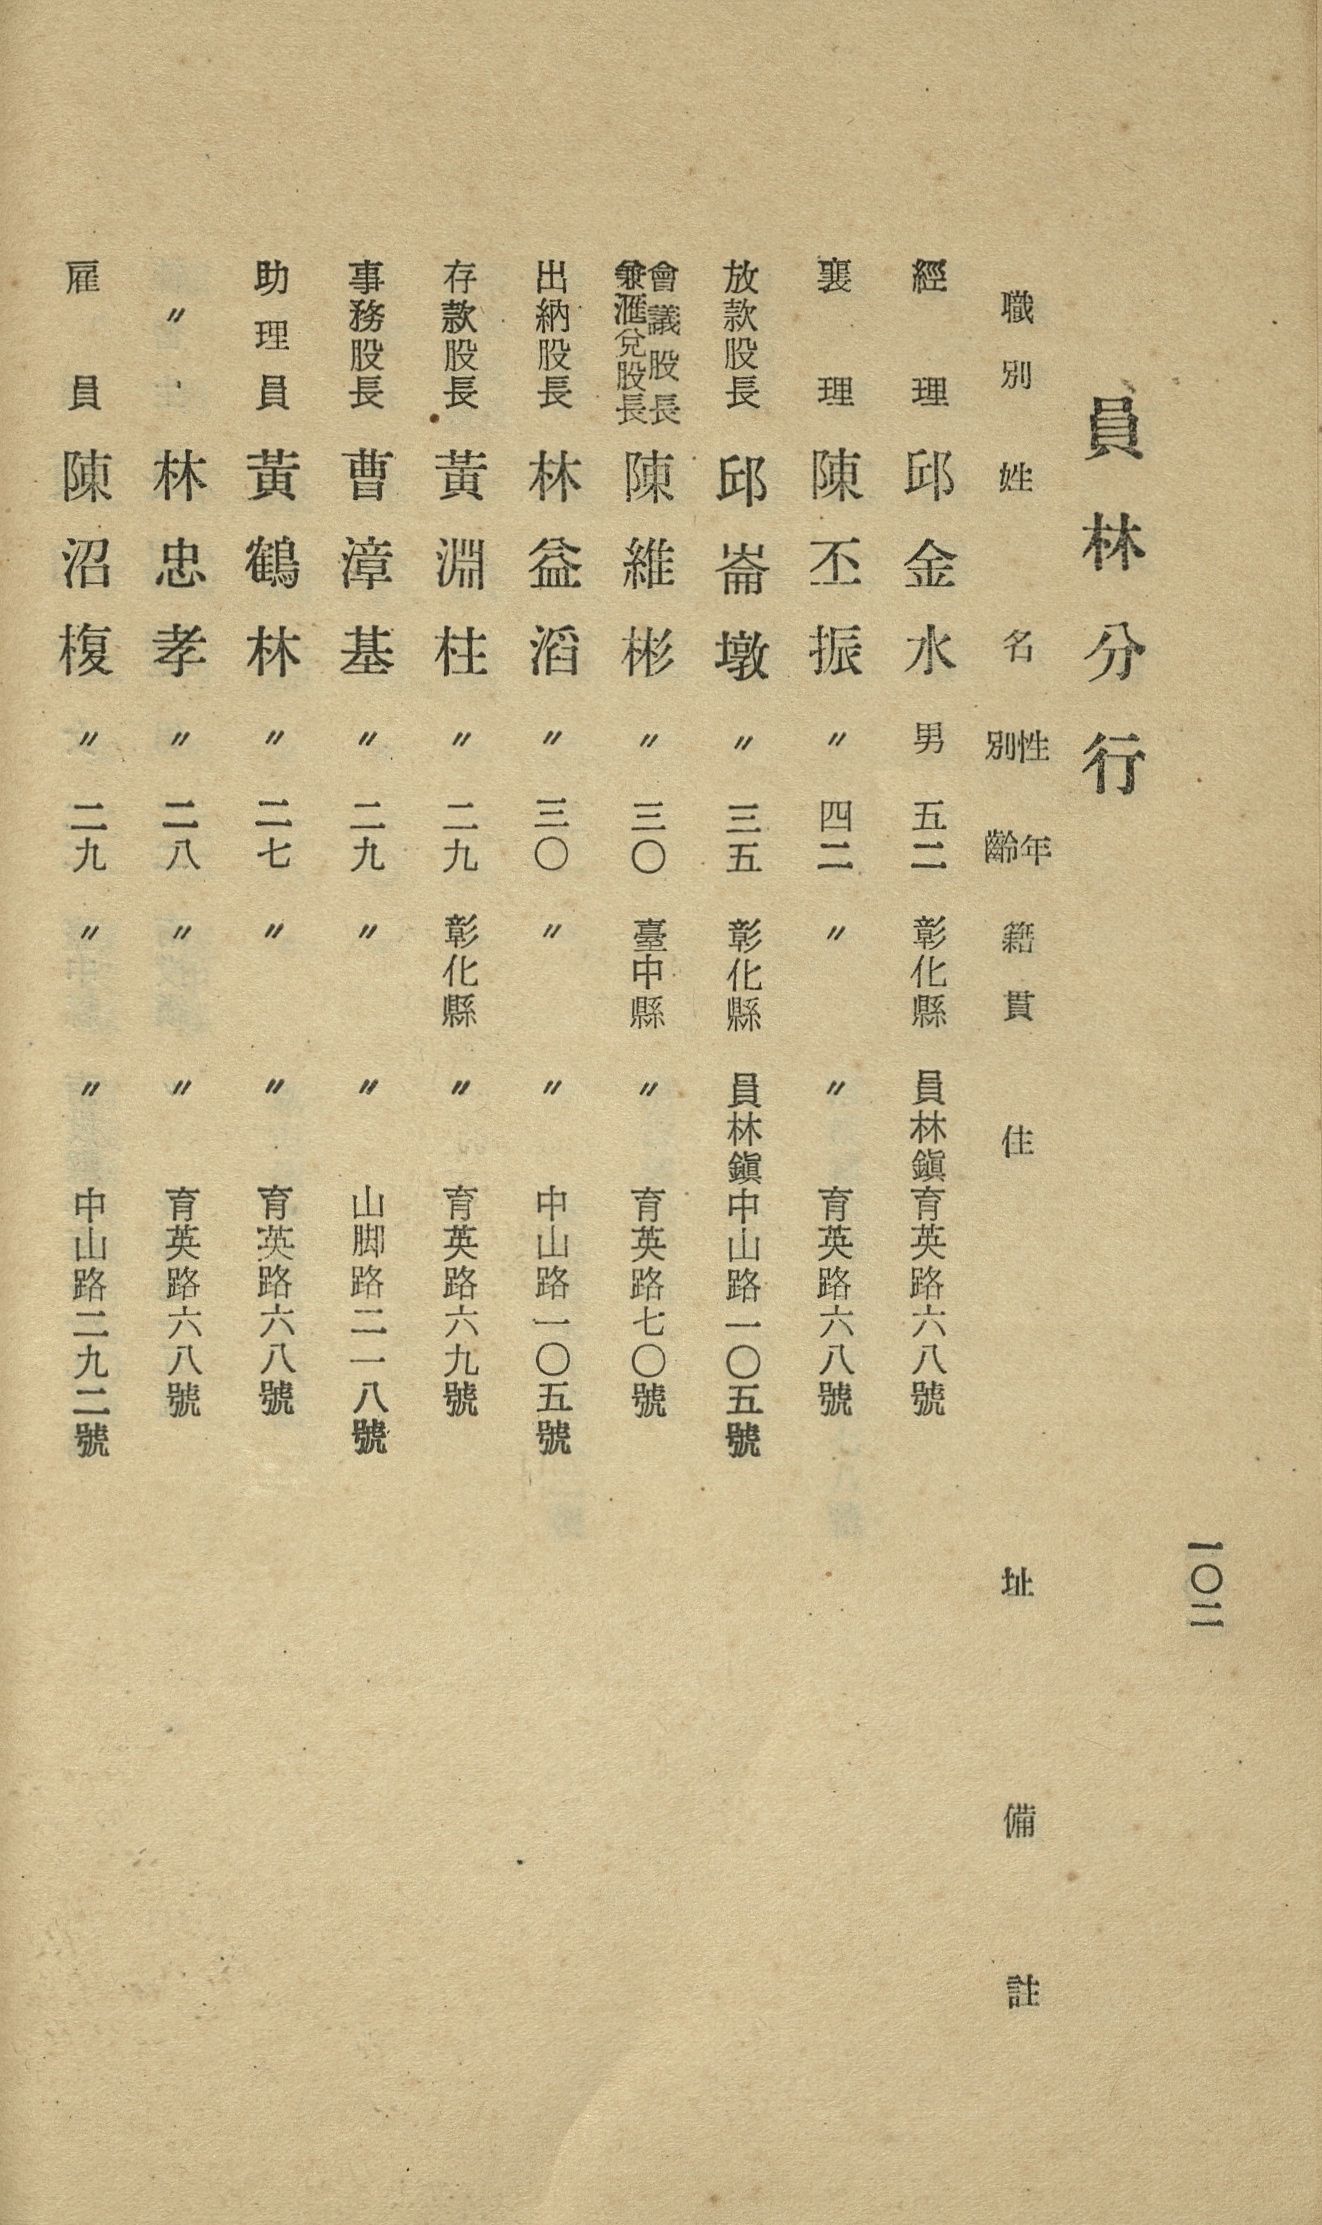 一〇二
員林分行
職別 姓名 性別 年齡 籍貫 住址 備註
經理 邱金水 男 五二 彰化縣 員林鎭育英路六八號
襄理 陳丕振 〃 四二 〃 〃 育英路六八號
放款股長 邱崙墩 〃 三五 彰化縣 員林鎭中山路一〇五號
會議股長兼滙兌股長 陳維彬 〃 三〇 臺中縣 〃 育英路七〇號
出納股長 林益滔 〃 三〇 〃 〃 中山路一〇五號
存款股長 黃淵柱 〃 二九 彰化縣 〃 育英路六九號
事務股長 曹漳基 〃 二九 〃 〃 山脚路二一八號
助理員 黃鶴林 〃 二七 〃 〃 育英路六八號
〃 林忠孝 〃 二八 〃 〃 育英路六八號
雇員 陳沼榎 〃 二九 〃 〃 中山路二九二號